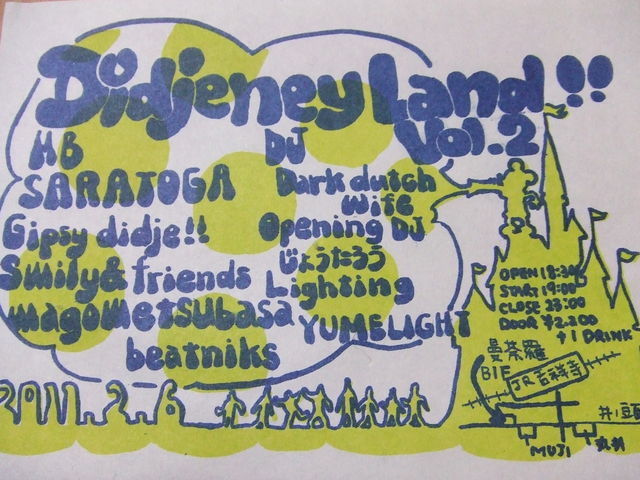 Didjeney Land !!
Vol.2
MB
SARATOGA
Gipsy didje!!
Smily & friends
magometsubasa
beatniks
DJ
Dark dutch
wife
Opening DJ
じょうたろう
Lighting
YUMELIGHT
OPEN 18:30
START 19:00
CLOSE 23:00
DOOR ¥2,300
+1 DRINK
曼荼羅
B1F
JR吉祥寺
井ノ頭
MUJI
丸井
2011.2.6